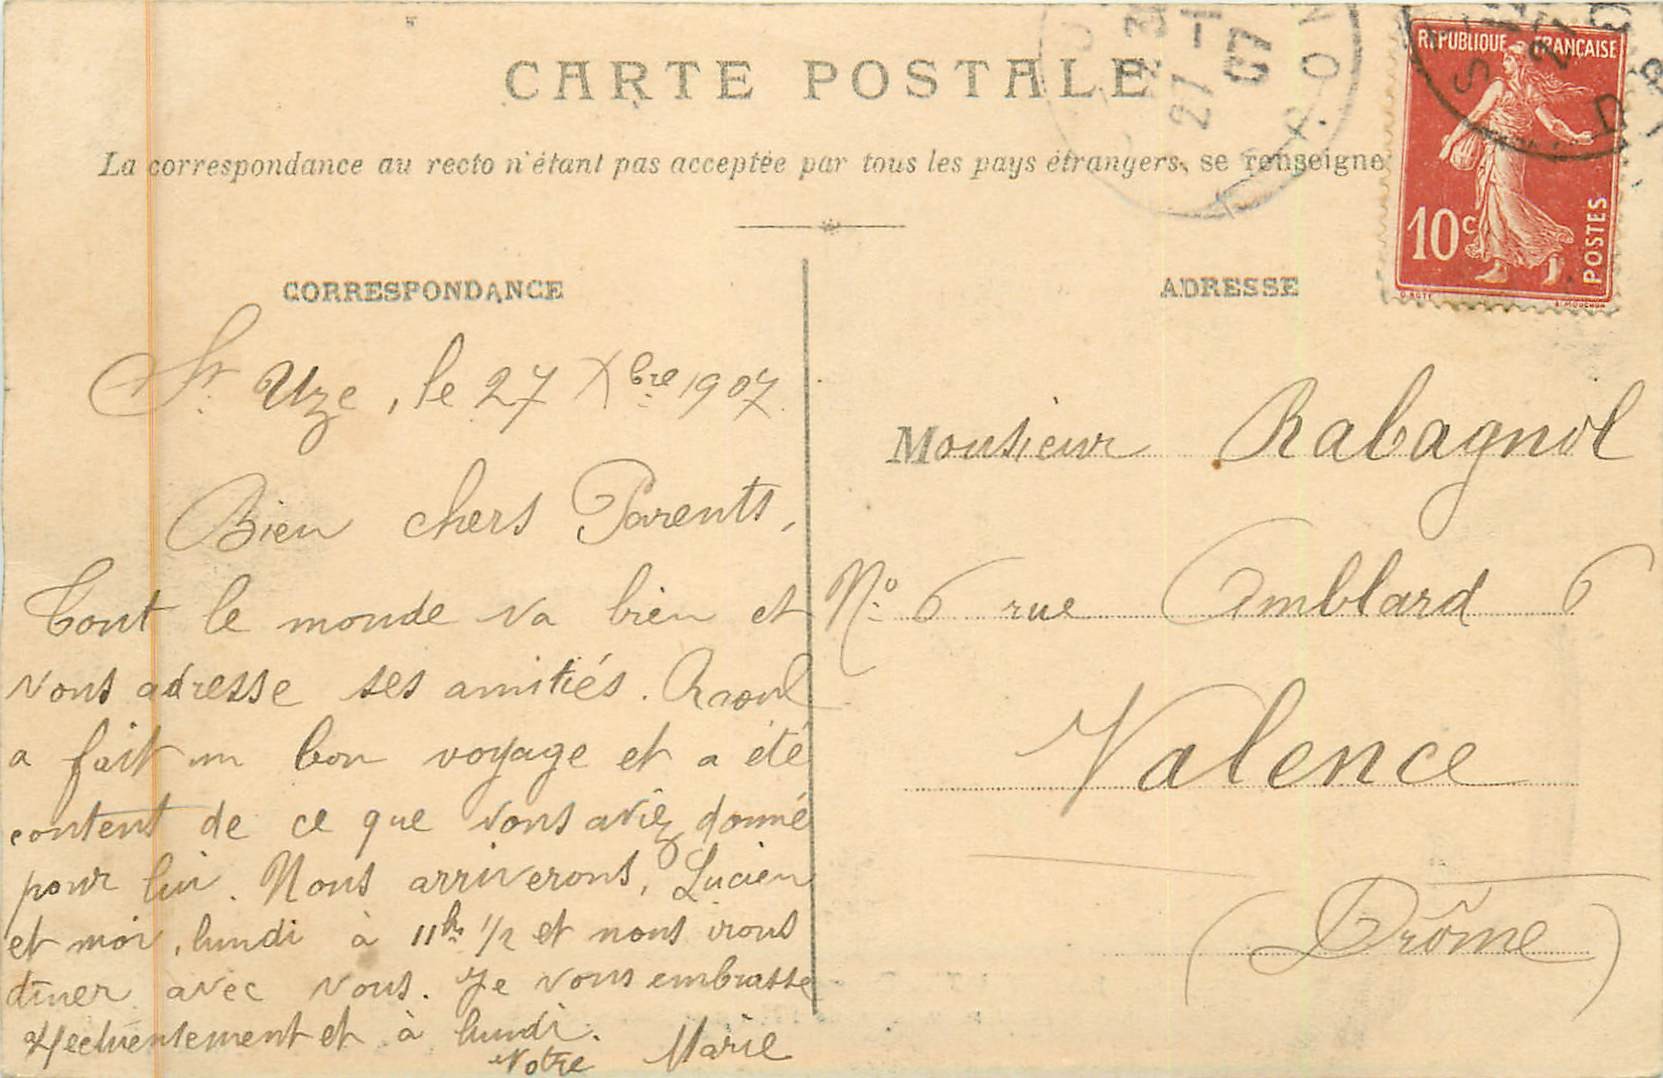 CARTE POSTALE
La correspondance au recto n'étant pas acceptée par tous les pays étrangers, se renseigne
RÉPUBLIQUE FRANÇAISE
10c
POSTES
27 -1
07
CORRESPONDANCE
ADRESSE
St Uze, le 27 Xbre 1907.
Bien chers Parents,
Tout le monde va bien et
vous adresse ses amitiés. Raoul
a fait un bon voyage et a été
content de ce que vous aviez donné
pour lui. Nous arriverons, Lucien
et moi, lundi à 11h. 1/2 et nous irons
dîner avec vous. Je vous embrasse
affectueusement et à lundi.
Votre Marie
Monsieur Rabagnol
No. 6 rue Amblard 6
Valence
(Drôme)